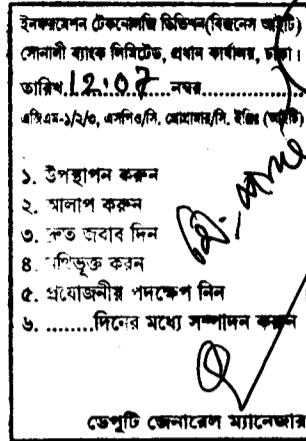 ইনফরমেশন টেকনোলজি ডিভিশন(বিজনেস আইটি)
সোনালী ব্যাংক লিমিটেড, প্রধান কার্যালয়, ঢাকা।
তারিখ.12.07......নম্বর..................
এজিএম-১/২/৩, এসপিও/সি. প্রোগ্রামার/সি. ইঞ্জিঃ (আইটি)
১. উপস্থাপন করুন
২. আলাপ করুন
৩. দ্রুত জবাব দিন
৪. নথিভুক্ত করন
৫. প্রযোজনীয় পদক্ষেপ নিন
৬. .........দিনের মধ্যে সম্পাদন করুন
ডেপুটি জেনারেল ম্যানেজার